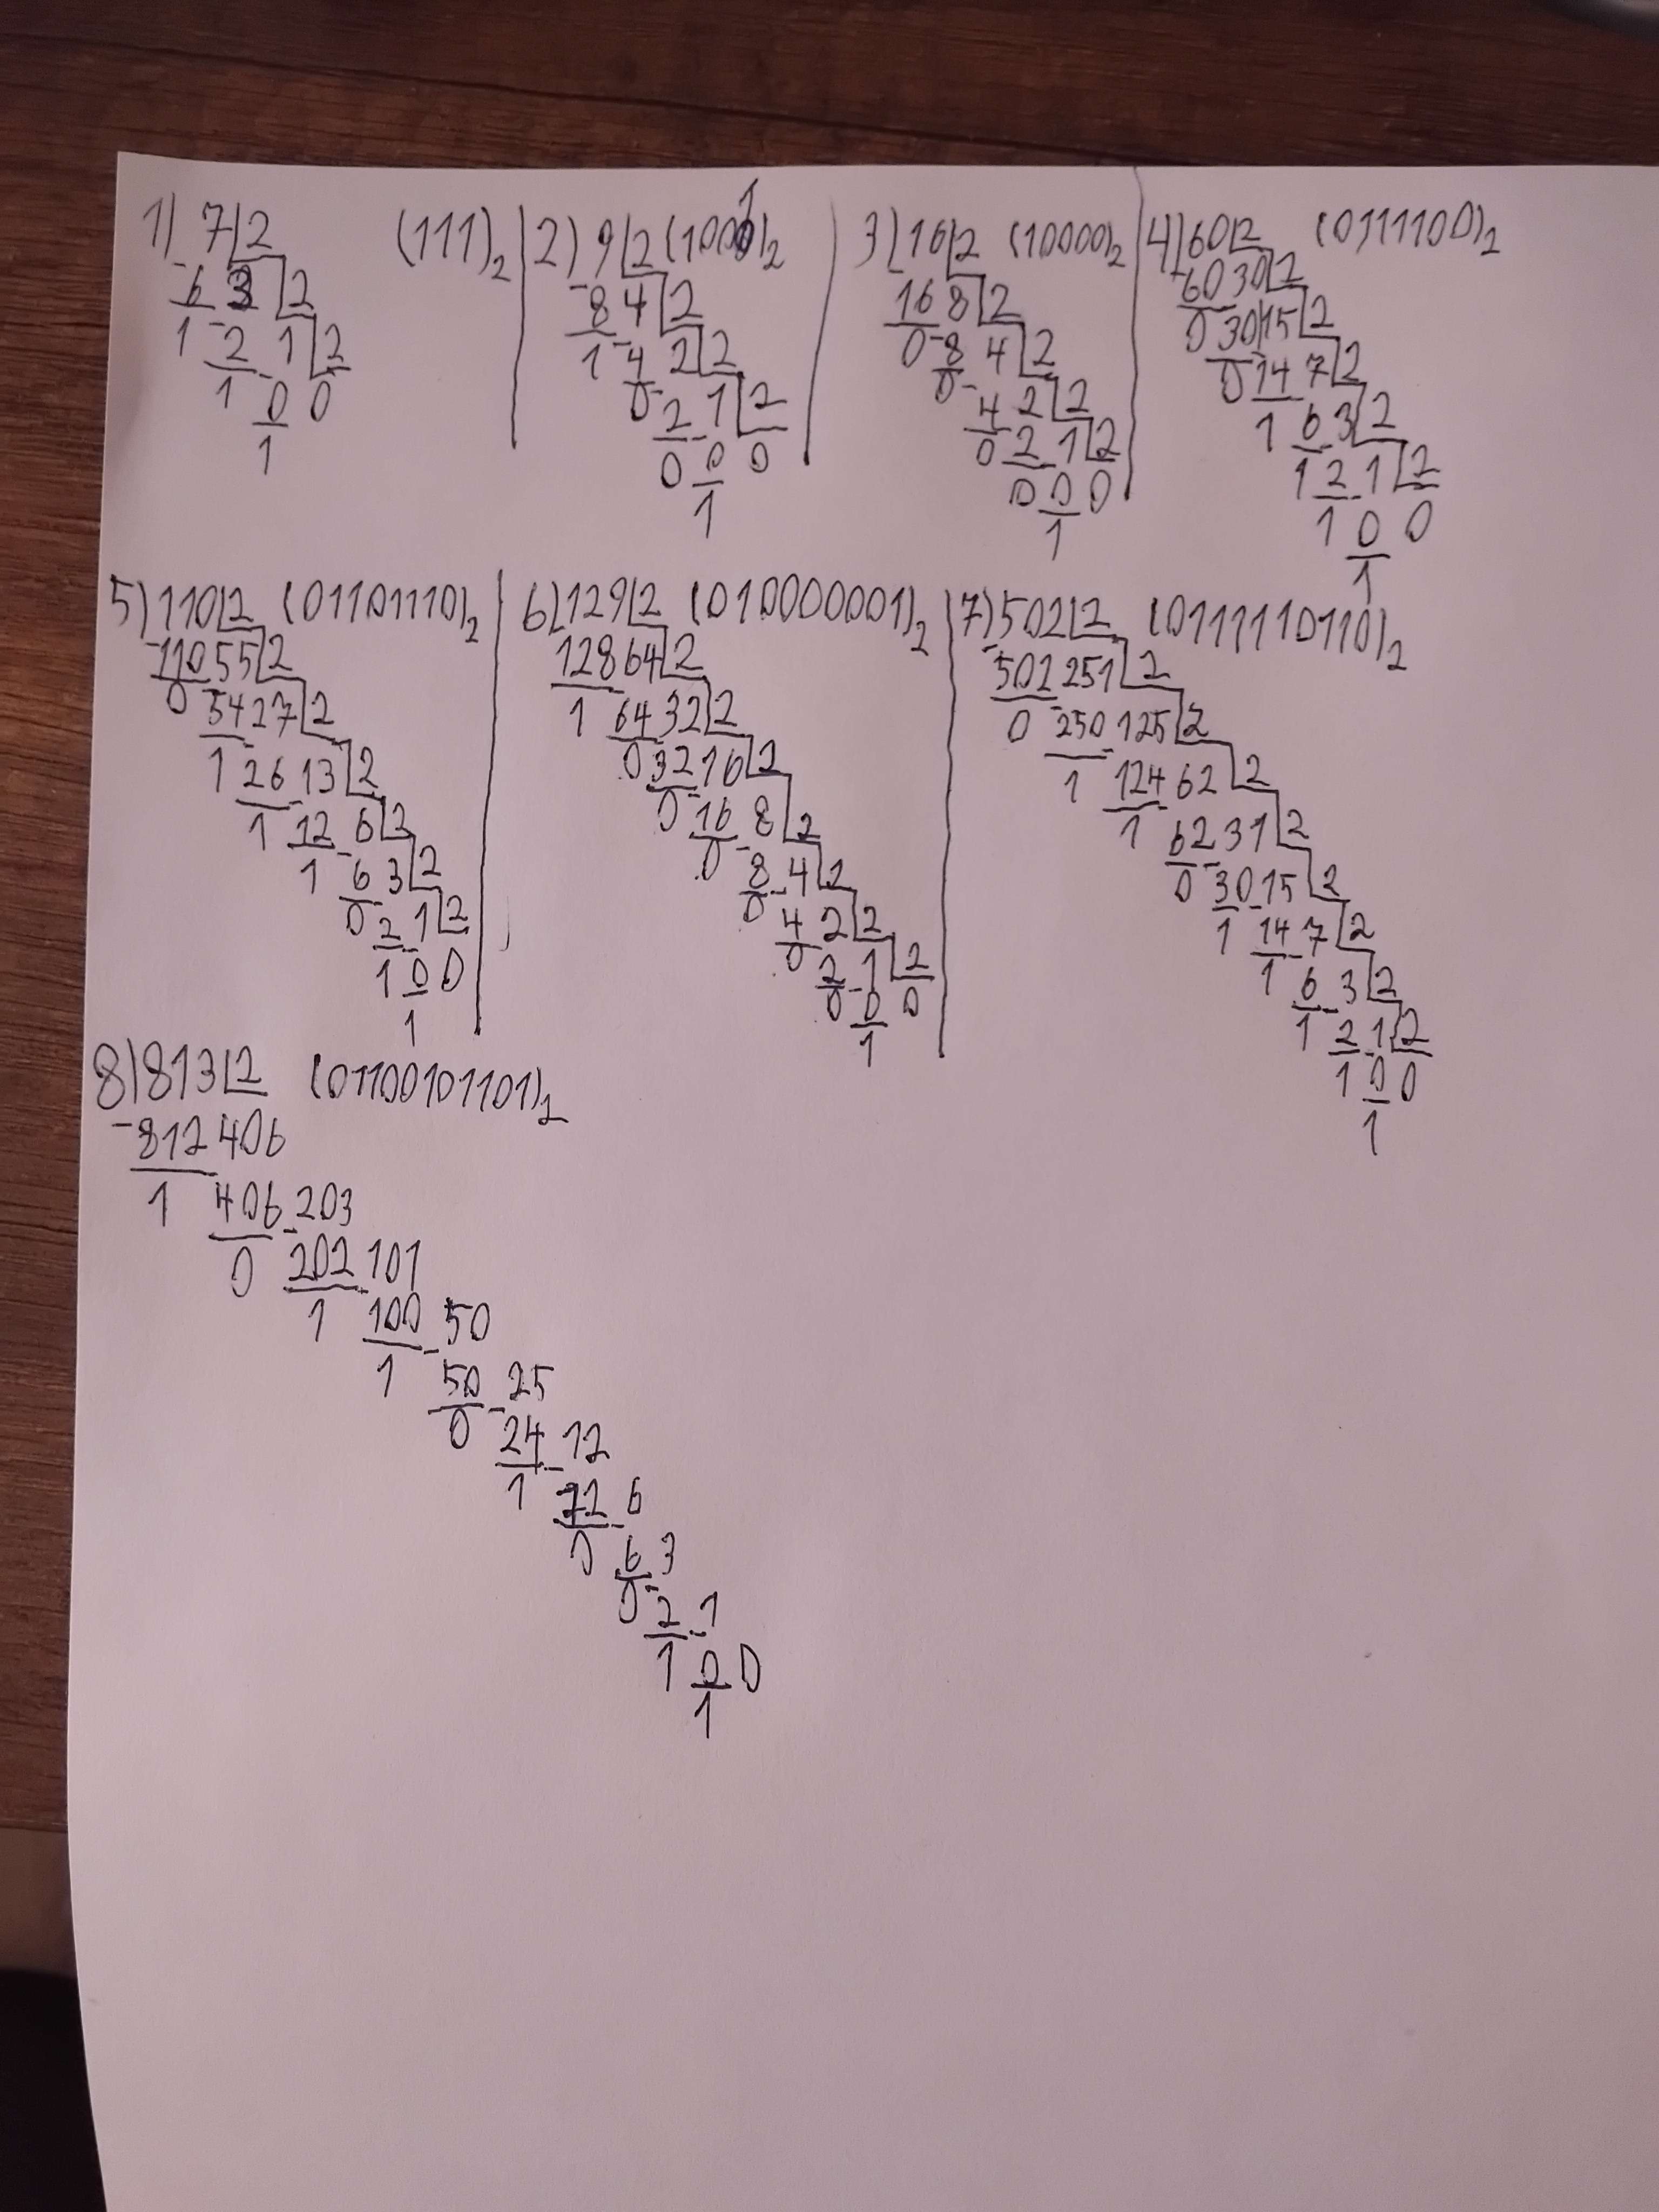 1) 7 2 (111)2
6 3 2
1 2 1 2
1 0 0
1
2) 9 2 (1001)2
8 4 2
1 4 2 2
0 2 1 2
0 0 0
1
3) 16 2 (10000)2
16 8 2
0 8 4 2
0 4 2 2
0 2 1 2
0 0 0
1
4) 60 2 (0111100)2
60 30 2
0 30 15 2
0 14 7 2
1 6 3 2
1 2 1 2
1 0 0
1
5) 110 2 (01101110)2
110 55 2
0 54 27 2
1 26 13 2
1 12 6 2
1 6 3 2
0 2 1 2
1 0 0
1
6) 129 2 (010000001)2
128 64 2
1 64 32 2
0 32 16 2
0 16 8 2
0 8 4 2
0 4 2 2
0 2 1 2
0 0 0
1
7) 502 2 (0111110110)2
502 251 2
0 250 125 2
1 124 62 2
1 62 31 2
0 30 15 2
1 14 7 2
1 6 3 2
1 2 1 2
1 0 0
1
8) 813 2 (01100101101)2
-812 406
1 406 203
0 202 101
1 100 50
1 50 25
0 24 12
1 12 6
0 6 3
0 2 1
1 0 0
1